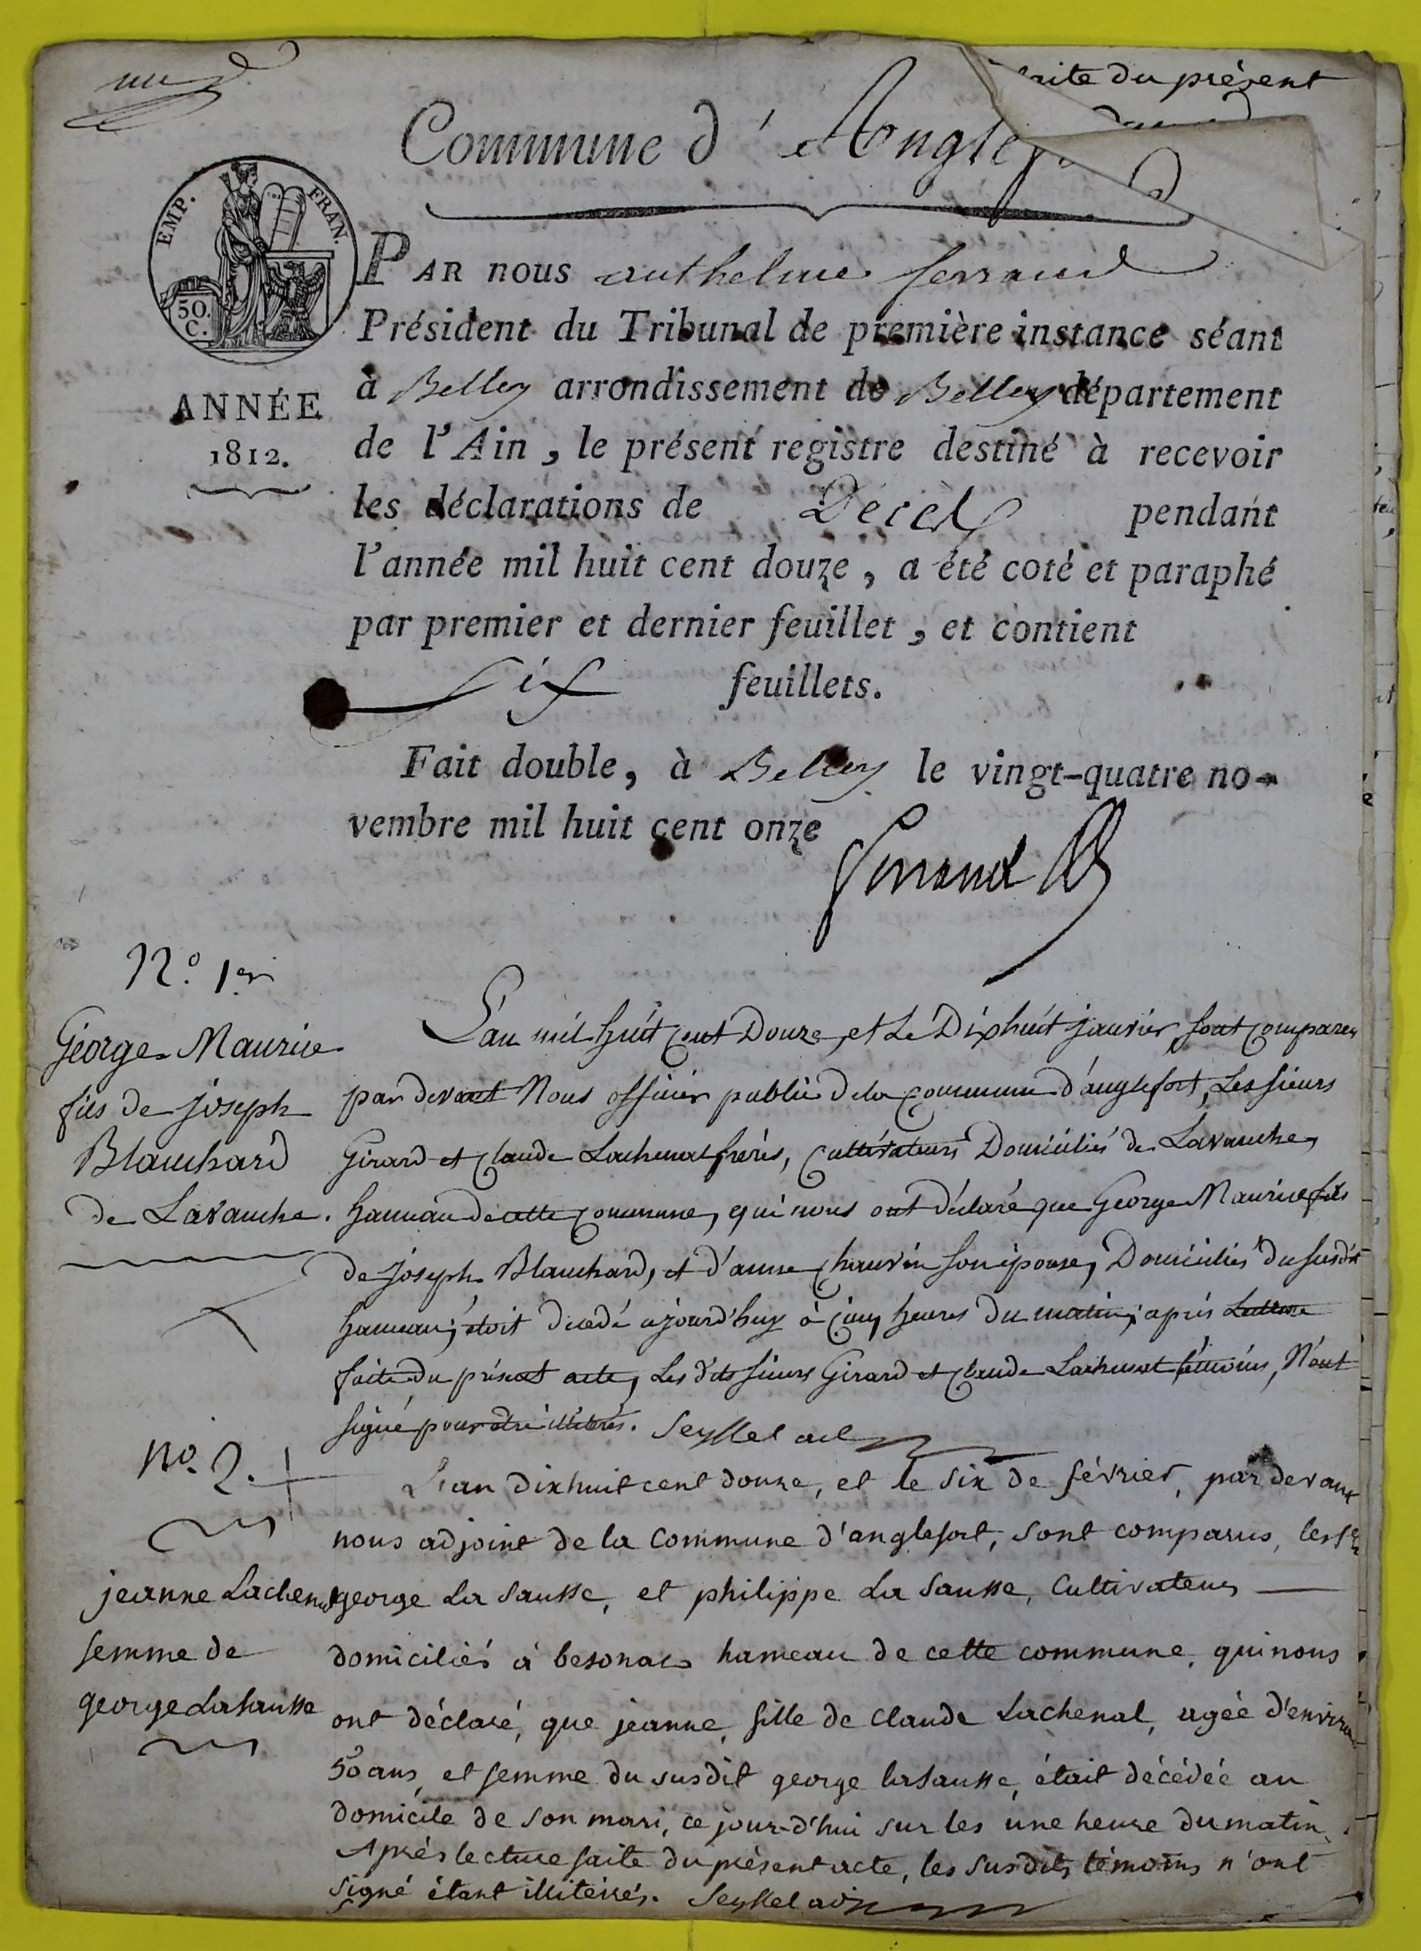 une
faite du présent
Commune d'Anglef
EMP. FRAN.
50. C.
ANNÉE
1812.
PAR nous anthelme ferrand
Président du Tribunal de première instance séant
à Belley arrondissement de Belley département
de l'Ain, le présent registre destiné à recevoir
les déclarations de Décès pendant
l'année mil huit cent douze, a été coté et paraphé
par premier et dernier feuillet, et contient
Six feuillets.
Fait double, à Belley le vingt-quatre no-
vembre mil huit cent onze
ferrand
N.o 1.er
George Maurice
fils de joseph
Blanchard
de Lavanche.
L'an mil huit cent Douze, et Le Dix huit janvier, sont comparus
par devant Nous officier public de la commune d'anglefort, Les sieurs
Girard et Claude Lachenal frères, Cultivateurs Domiciliés de Lavanche,
hameau de cette commune, qui nous ont déclaré que George Maurice fils
de joseph Blanchard, et d'anne Chauvin son épouse, Domiciliés du susdit
hameau; étoit décédé ajourd'huy à Cinq heures du matin; après Lecture
faite du présent acte, Les dits sieurs Girard et Claude Lachenal témoins, N'ont
signé pour être illiterés. Seyssel adj
No. 2.
jeanne Lachenal
femme de
george Lasausse
L'an dix huit cent douze, et le six de février, par devant
nous adjoint de la Commune d'anglefort, sont comparus, les Srs
george La Sausse, et philippe La Sausse, Cultivateurs
domiciliés à besonac hameau de cette commune, qui nous
ont déclaré, que jeanne, fille de Claude Lachenal, agée d'environ
50 ans, et femme du susdit george la Sausse, était décédée au
domicile de son mari, ce jourd'hui sur les une heure du matin.
Après lecture faite du présent acte, les susdits témoins n'ont
signé étant illiterrés. Seyssel adj